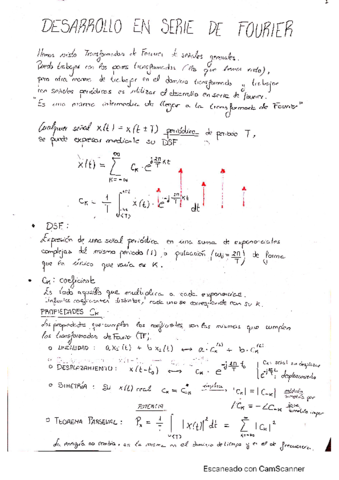 DESARROLLO EN SERIE DE FOURIER
Hemos visto Transformadas de Fourier de señales generales.
Puedo trabajar con los pares transformados
pero otra manera de trabajar en el dominio transformado y trabajar
con señales periódicas es utilizar el desarrollo en serie de fourier.
"Es una manera intermedia de llegar a la transformada de Fourier"
Cualquier señal x(t) = x(t ± T) periódica de periodo T,
se puede expresar mediante su DSF
x(t) = ∑ cₖ · e^{j 2π/T kt}
K=-∞
cₖ = 1/T ∫ x(t) · e^{-j 2π/T kt} dt
• DSF:
Expresión de una señal periódica en una suma de exponenciales
complejas del mismo periodo (T) o pulsación (ω₀ = 2π/T) de forma
que lo único que varía es K.
• Cₖ: coeficiente
Es todo aquello que multiplica a cada exponencial.
Infinitos coeficientes distintos, cada uno se corresponde con su K.
PROPIEDADES Cₖ
Las propiedades que cumplen los coeficientes son las mismas que cumplen
las transformadas de Fourier (TF).
○ LINEALIDAD: a x₁(t) + b x₂(t) ↔ a·Cₖ⁽¹⁾ + b·Cₖ⁽²⁾
○ DESPLAZAMIENTO: x(t-t₀) ↔ Cₖ · e^{-j 2π/T k t₀}
desplazamiento
○ SIMETRÍA: Si x(t) real Cₖ = C₋ₖ* implica |Cₖ| = |C₋ₖ| módulo simetría par
∠Cₖ = -∠C₋ₖ fase simetría impar
POTENCIA
○ TEOREMA PARSEVAL: Pₓ = 1/T ∫ |x(t)|² dt = ∑ |Cₖ|²
La energía no cambia, es la misma en el dominio de tiempo y en el de frecuencia.
Escaneado con CamScanner